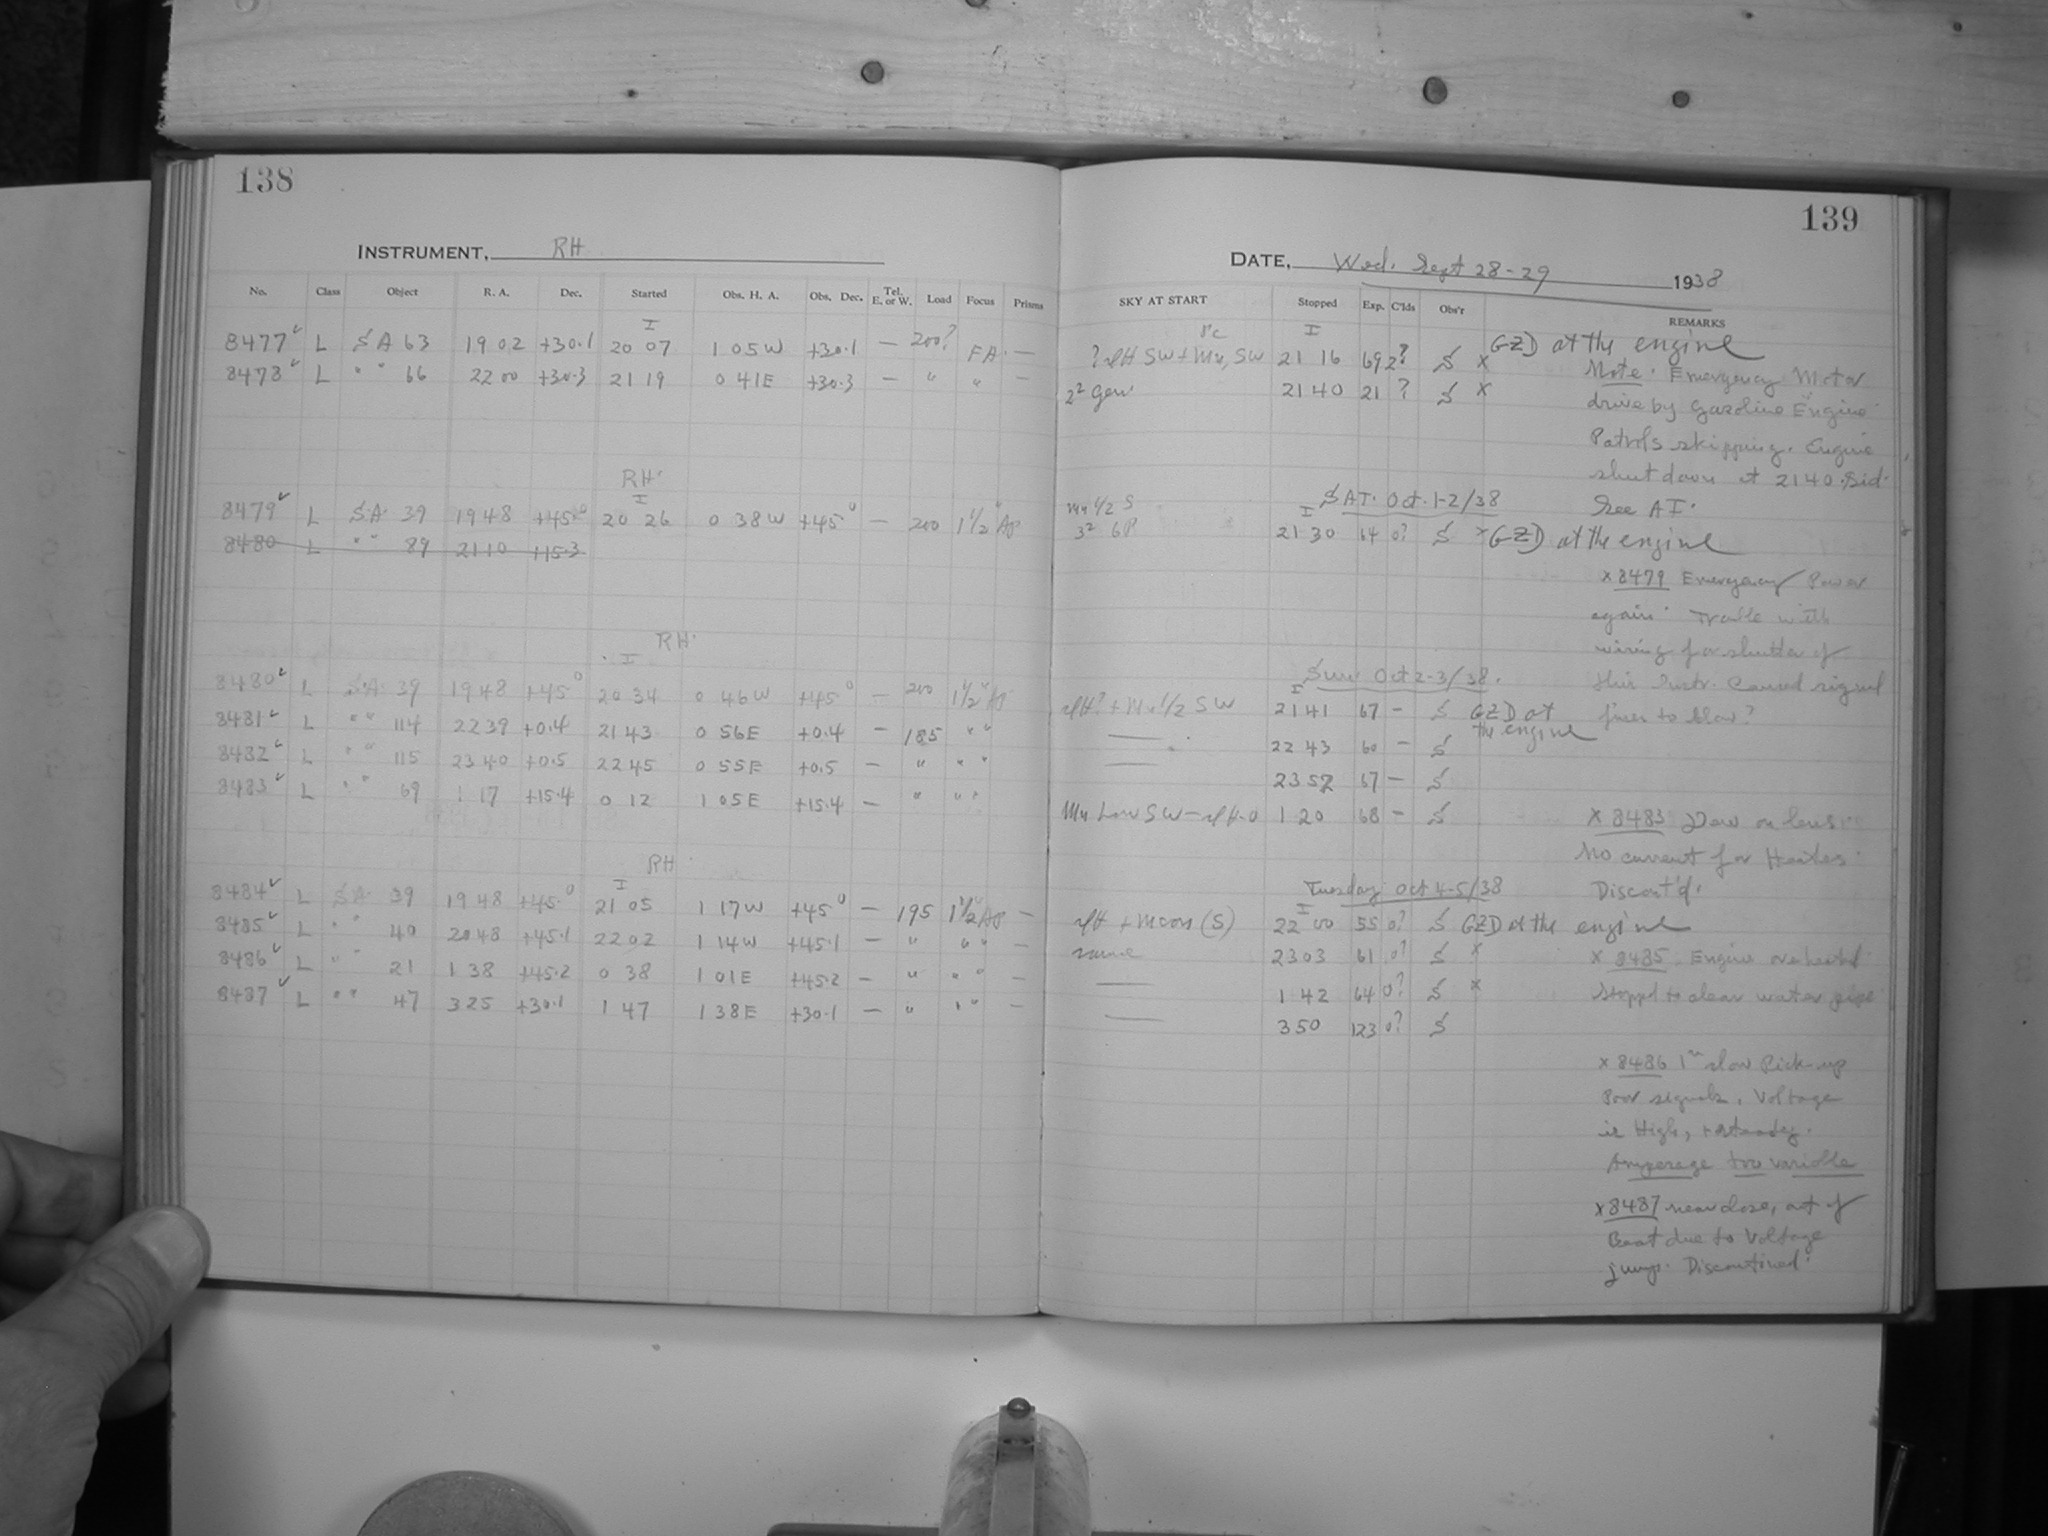 138
INSTRUMENT, RH
No. Class Object R. A. Dec. Started Obs. H. A. Obs. Dec. Tel. E. or W. Load Focus Prisms
I
8477 L SA 63 19 02 +30.1 20 07 1 05 W +30.1 — 200? FA. —
8478 L " " 66 22 00 +30.3 21 19 0 41 E +30.3 — " " —
RH
I
8479 L SA 39 19 48 +45.0 20 26 0 38 W +45.0 — 200 1 1/2"
8480 L " " 89 21 10 +15.3
RH
I
8480 L SA 39 19 48 +45.0 20 34 0 46 W +45.0 — 200 1 1/2"
8481 L " " 114 22 39 +0.4 21 43 0 56 E +0.4 — 185 " "
8482 L " " 115 23 40 +0.5 22 45 0 55 E +0.5 — " " "
8483 L " " 69 1 17 +15.4 0 12 1 05 E +15.4 — " " "
RH
I
8484 L SA 39 19 48 +45.0 21 05 1 17 W +45.0 — 195 1 1/2" —
8485 L " " 40 20 48 +45.1 22 02 1 14 W +45.1 — " " " —
8486 L " " 21 1 38 +45.2 0 38 1 01 E +45.2 — " " " —
8487 L " " 47 3 25 +30.1 1 47 1 38 E +30.1 — " " " —
139
DATE, Wed. Sept 28-29 1938
SKY AT START Stopped Exp. C'lds Obs'r REMARKS
I
SW + SW 21 16 69 2? S X GZD at the engine
21 40 21 ? S X
Note. Emergency Motor
drive by Gasoline Engine
Patrols skipping. Engine
shut down at 21 40 Sid.
See AI.
SAT. Oct. 1-2/38
I
1/2 S
21 30 64 0? S X GZD at the engine
X 8479 Emergency Power
again. Trouble with
wiring for shutter of
this Instr. Caused signal
fuses to blow?
Sun. Oct 2-3/38.
I
1/2 SW 21 41 67 — S GZD at
the engine
— 22 43 60 — S
— 23 52 67 — S
Low SW 1 20 68 — S
X 8483 Dew on lens
No current for Heater
Discont'd.
Tuesday Oct 4-5/38
I
+ Moon (S) 22 00 55 0? S GZD at the engine
same 23 03 61 0? S X
— 1 42 64 0? S X
— 3 50 123 0? S
X 8485 Engine overheated
Stopped to clear water pipe
X 8486 1m slow Pick-up
Poor signals. Voltage
is High, + steady.
Amperage too variable
X 8487 near close, out of
Beat due to Voltage
jump. Discontinued.